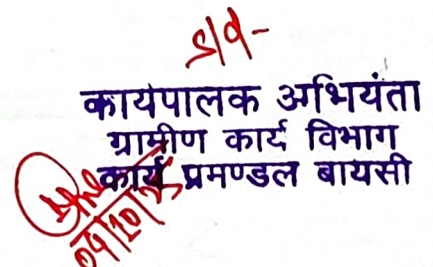 कार्यपालक अभियंता
ग्रामीण कार्य विभाग
कार्य प्रमण्डल बायसी